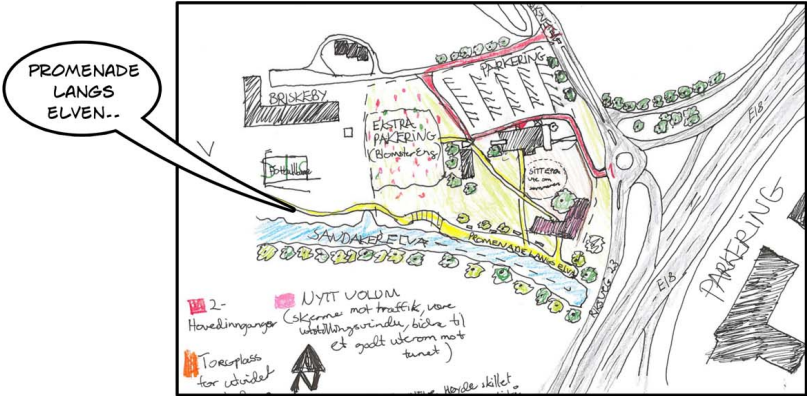 PROMENADE
LANGS
ELVEN..
BRISKEBY
PARKERING
E18
EKSTRA
PAKERING
(Blomster Eng)
Fotballbane
SITTEPL.
ute om
sommeren
V
SANDAKERELVA
PROMENADE LANGS ELVA
RIKSVEG 23
E18
PARKERING
2-
Hovedinnganger
NYTT VOLUM
(skjerme mot traffik, være
utstillingsvindu, bidra til
et godt uterom mot
tunet)
Torgplass
for utvidet
N
Høyde skillet